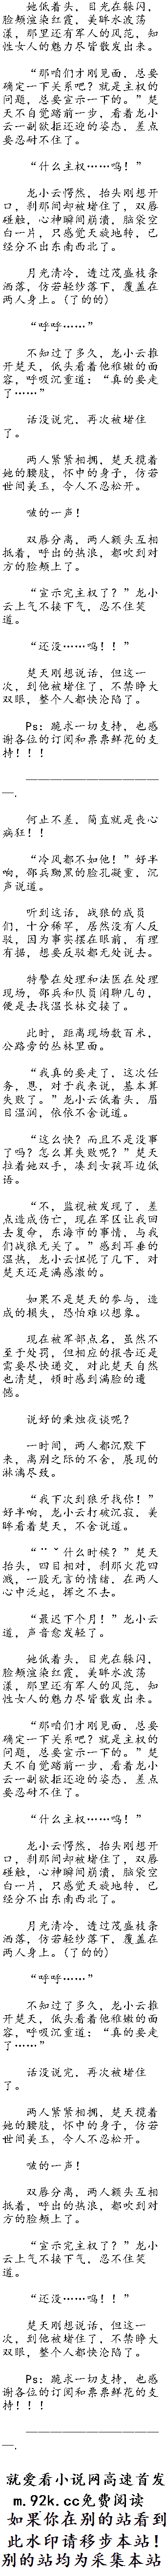 她低着头，目光在躲闪，
脸颊渲染红霞，美眸水波荡
漾，那里还有军人的风范，知
性女人的魅力尽皆散发出来。
“那咱们才刚见面，总要
确定一下关系吧？就是主权的
问题，总要宣示一下的。”楚
天不自觉踏前一步，看着龙小
云一副欲拒还迎的姿态，差点
要忍耐不住了。
“什么主权……呜！”
龙小云愕然，抬头刚想开
口，刹那间却被堵住了，双唇
碰触，心神瞬间崩溃，脑袋空
白一片，只感觉天旋地转，已
经分不出东南西北了。
月光清冷，透过茂盛枝条
洒落，仿若轻纱落下，覆盖在
两人身上。(了的的)
“呼呼……”
不知过了多久，龙小云推
开楚天，低头看着他稚嫩的面
容，呼吸沉重道：“真的要走
了……”
话没说完，再次被堵住
了。
两人紧紧相拥，楚天搅着
她的腰肢，怀中的身子，仿若
世间美玉，令人不忍松开。
啵的一声！
双唇分离，两人额头互相
抵着，呼出的热浪，都吹到对
方的脸颊上了。
“宣示完主权了？”龙小
云上气不接下气，忍不住笑
道。
“还没……呜！！”
楚天刚想说话，但这一
次，到他被堵住了，不禁睁大
双眼，整个人都快沦陷了。
Ps：跪求一切支持，也感
谢各位的订阅和票票鲜花的支
持！！！
————————————
—.
何止不差，简直就是丧心
病狂！！
“冷风都不如他！”好半
响，邵兵黝黑的脸孔凝重，沉
声说道。
听到这话，战狼的成员
们，十分稀罕，居然没有人反
驳，因为事实摆在眼前，有理
有据，想要反驳都无处说去。
特警在处理和法医在处理
现场，邵兵和队员闲聊几句，
便是去找温长林交接了。
此时，距离现场数百米，
公路旁的丛林里面。
“我真的要走了，这次任
务，恩，对于我来说，基本算
失败了。”龙小云低着头，眉
目湿润，依依不舍说道。
“这么快？而且不是没事
了吗？怎么算失败呢？”楚天
拉着她双手，凑到女孩耳边低
语。
“不，监视被发现了，差
点造成伤亡，现在军区让我回
去复命，东海市的事情，与我
们战狼无关了。”感到耳垂的
湿热，龙小云怔愣了几下，对
楚天还是满感激的。
如果不是楚天的参与，造
成的损失，恐怕难以想象。
现在被军部点名，虽然不
至于处罚，但相应的报告还是
需要尽快递交，对此楚天自然
也清楚，顿时感到满脸的遗
憾。
说好的秉烛夜谈呢？
一时间，两人都沉默下
来，离别之际的不舍，展现的
淋漓尽致。
“我下次到狼牙找你！”
好半响，龙小云打破沉寂，美
眸看着楚天，不舍说道。
“¨ˇ什么时候？”楚天
抬头，四目相对，刹那火花四
溅，一股无言的情绪，在两人
心中泛起，挥之不去。
“最迟下个月！”龙小云
道，声音愈发轻了。
她低着头，目光在躲闪，
脸颊渲染红霞，美眸水波荡
漾，那里还有军人的风范，知
性女人的魅力尽皆散发出来。
“那咱们才刚见面，总要
确定一下关系吧？就是主权的
问题，总要宣示一下的。”楚
天不自觉踏前一步，看着龙小
云一副欲拒还迎的姿态，差点
要忍耐不住了。
“什么主权……呜！”
龙小云愕然，抬头刚想开
口，刹那间却被堵住了，双唇
碰触，心神瞬间崩溃，脑袋空
白一片，只感觉天旋地转，已
经分不出东南西北了。
月光清冷，透过茂盛枝条
洒落，仿若轻纱落下，覆盖在
两人身上。(了的的)
“呼呼……”
不知过了多久，龙小云推
开楚天，低头看着他稚嫩的面
容，呼吸沉重道：“真的要走
了……”
话没说完，再次被堵住
了。
两人紧紧相拥，楚天搅着
她的腰肢，怀中的身子，仿若
世间美玉，令人不忍松开。
啵的一声！
双唇分离，两人额头互相
抵着，呼出的热浪，都吹到对
方的脸颊上了。
“宣示完主权了？”龙小
云上气不接下气，忍不住笑
道。
“还没……呜！！”
楚天刚想说话，但这一
次，到他被堵住了，不禁睁大
双眼，整个人都快沦陷了。
Ps：跪求一切支持，也感
谢各位的订阅和票票鲜花的支
持！！！
————————————
—.
就爱看小说网高速首发
m.92k.cc免费阅读
如果你在别的站看到
此水印请移步本站！
别的站均为采集本站